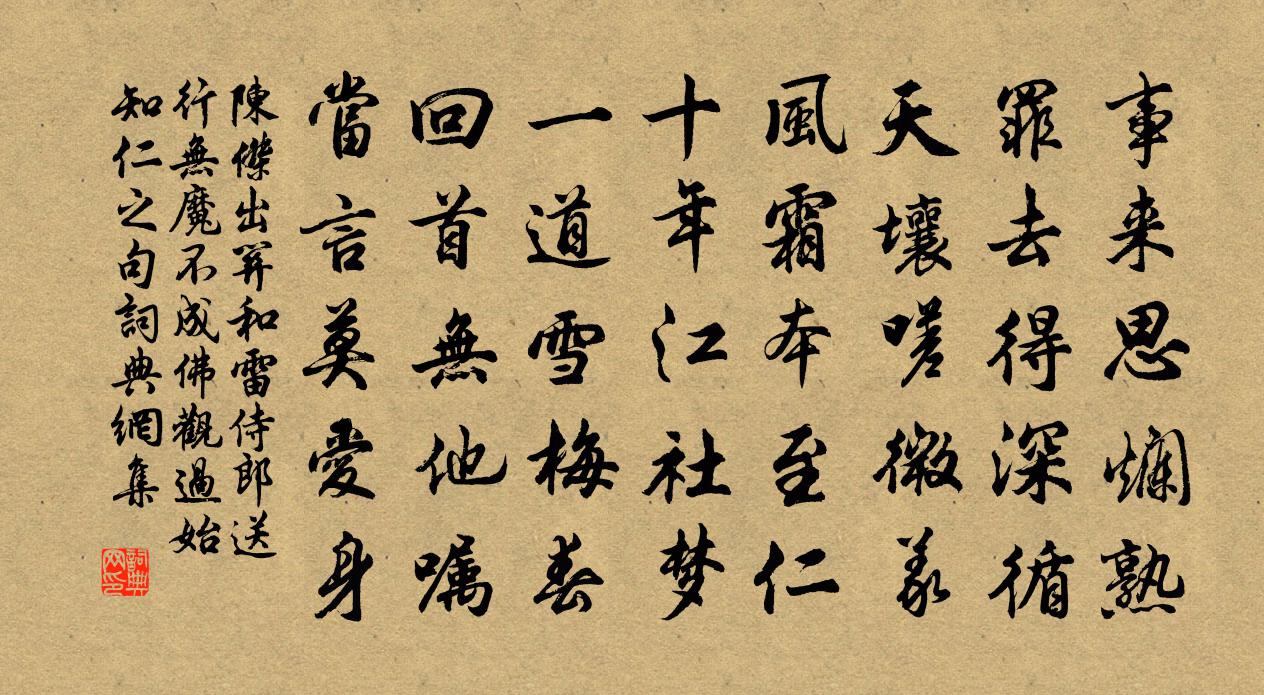 事来思爛熟
罪去得深循
天壤嗟微義
風霜本至仁
十年江社梦
一道雪梅春
回首無他嘱
當言莫愛身
陳傑出笄和雷侍郎送
行無魔不成佛觀過始
知仁之句詞典網集
詞典
网印